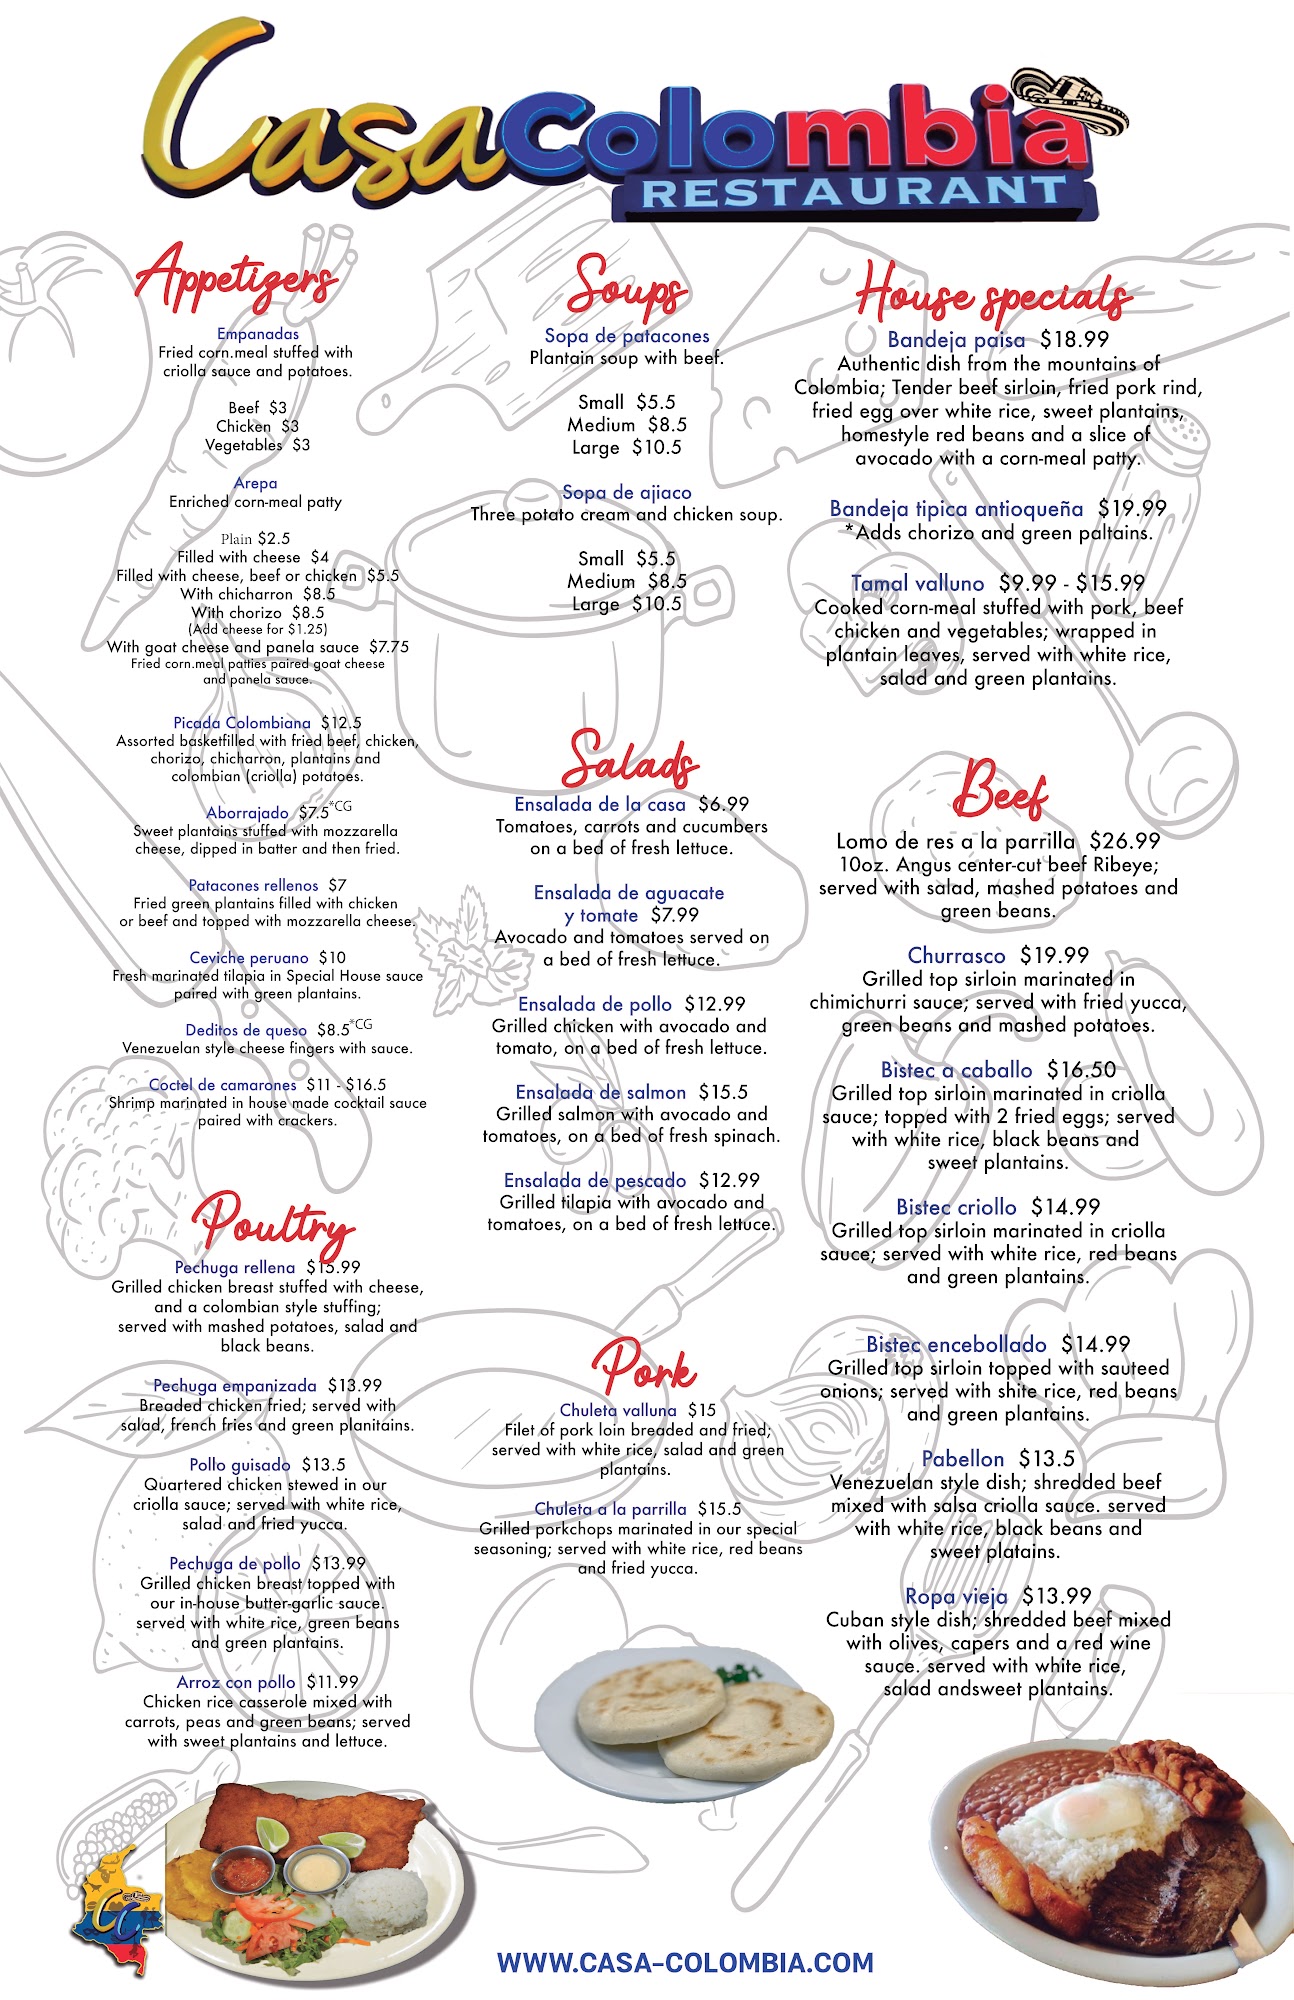 CasaColombia
RESTAURANT
Appetizers
Empanadas
Fried corn.meal stuffed with
criolla sauce and potatoes.
Beef $3
Chicken $3
Vegetables $3
Arepa
Enriched corn-meal patty
Plain $2.5
Filled with cheese $4
Filled with cheese, beef or chicken $5.5
With chicharron $8.5
With chorizo $8.5
(Add cheese for $1.25)
With goat cheese and panela sauce $7.75
Fried corn.meal patties paired goat cheese
and panela sauce.
Picada Colombiana $12.5
Assorted basketfilled with fried beef, chicken,
chorizo, chicharron, plantains and
colombian (criolla) potatoes.
Aborrajado $7.5*CG
Sweet plantains stuffed with mozzarella
cheese, dipped in batter and then fried.
Patacones rellenos $7
Fried green plantains filled with chicken
or beef and topped with mozzarella cheese.
Ceviche peruano $10
Fresh marinated tilapia in Special House sauce
paired with green plantains.
Deditos de queso $8.5*CG
Venezuelan style cheese fingers with sauce.
Coctel de camarones $11 - $16.5
Shrimp marinated in house made cocktail sauce
paired with crackers.
Poultry
Pechuga rellena $15.99
Grilled chicken breast stuffed with cheese,
and a colombian style stuffing;
served with mashed potatoes, salad and
black beans.
Pechuga empanizada $13.99
Breaded chicken fried; served with
salad, french fries and green planitains.
Pollo guisado $13.5
Quartered chicken stewed in our
criolla sauce; served with white rice,
salad and fried yucca.
Pechuga de pollo $13.99
Grilled chicken breast topped with
our in-house butter-garlic sauce.
served with white rice, green beans
and green plantains.
Arroz con pollo $11.99
Chicken rice casserole mixed with
carrots, peas and green beans; served
with sweet plantains and lettuce.
Soups
Sopa de patacones
Plantain soup with beef.
Small $5.5
Medium $8.5
Large $10.5
Sopa de ajiaco
Three potato cream and chicken soup.
Small $5.5
Medium $8.5
Large $10.5
Salads
Ensalada de la casa $6.99
Tomatoes, carrots and cucumbers
on a bed of fresh lettuce.
Ensalada de aguacate
y tomate $7.99
Avocado and tomatoes served on
a bed of fresh lettuce.
Ensalada de pollo $12.99
Grilled chicken with avocado and
tomato, on a bed of fresh lettuce.
Ensalada de salmon $15.5
Grilled salmon with avocado and
tomatoes, on a bed of fresh spinach.
Ensalada de pescado $12.99
Grilled tilapia with avocado and
tomatoes, on a bed of fresh lettuce.
Pork
Chuleta valluna $15
Filet of pork loin breaded and fried;
served with white rice, salad and green
plantains.
Chuleta a la parrilla $15.5
Grilled porkchops marinated in our special
seasoning; served with white rice, red beans
and fried yucca.
House specials
Bandeja paisa $18.99
Authentic dish from the mountains of
Colombia; Tender beef sirloin, fried pork rind,
fried egg over white rice, sweet plantains,
homestyle red beans and a slice of
avocado with a corn-meal patty.
Bandeja tipica antioqueña $19.99
*Adds chorizo and green paltains.
Tamal valluno $9.99 - $15.99
Cooked corn-meal stuffed with pork, beef
chicken and vegetables; wrapped in
plantain leaves, served with white rice,
salad and green plantains.
Beef
Lomo de res a la parrilla $26.99
10oz. Angus center-cut beef Ribeye;
served with salad, mashed potatoes and
green beans.
Churrasco $19.99
Grilled top sirloin marinated in
chimichurri sauce; served with fried yucca,
green beans and mashed potatoes.
Bistec a caballo $16.50
Grilled top sirloin marinated in criolla
sauce; topped with 2 fried eggs; served
with white rice, black beans and
sweet plantains.
Bistec criollo $14.99
Grilled top sirloin marinated in criolla
sauce; served with white rice, red beans
and green plantains.
Bistec encebollado $14.99
Grilled top sirloin topped with sauteed
onions; served with shite rice, red beans
and green plantains.
Pabellon $13.5
Venezuelan style dish; shredded beef
mixed with salsa criolla sauce. served
with white rice, black beans and
sweet platains.
Ropa vieja $13.99
Cuban style dish; shredded beef mixed
with olives, capers and a red wine
sauce. served with white rice,
salad andsweet plantains.
CC
WWW.CASA-COLOMBIA.COM